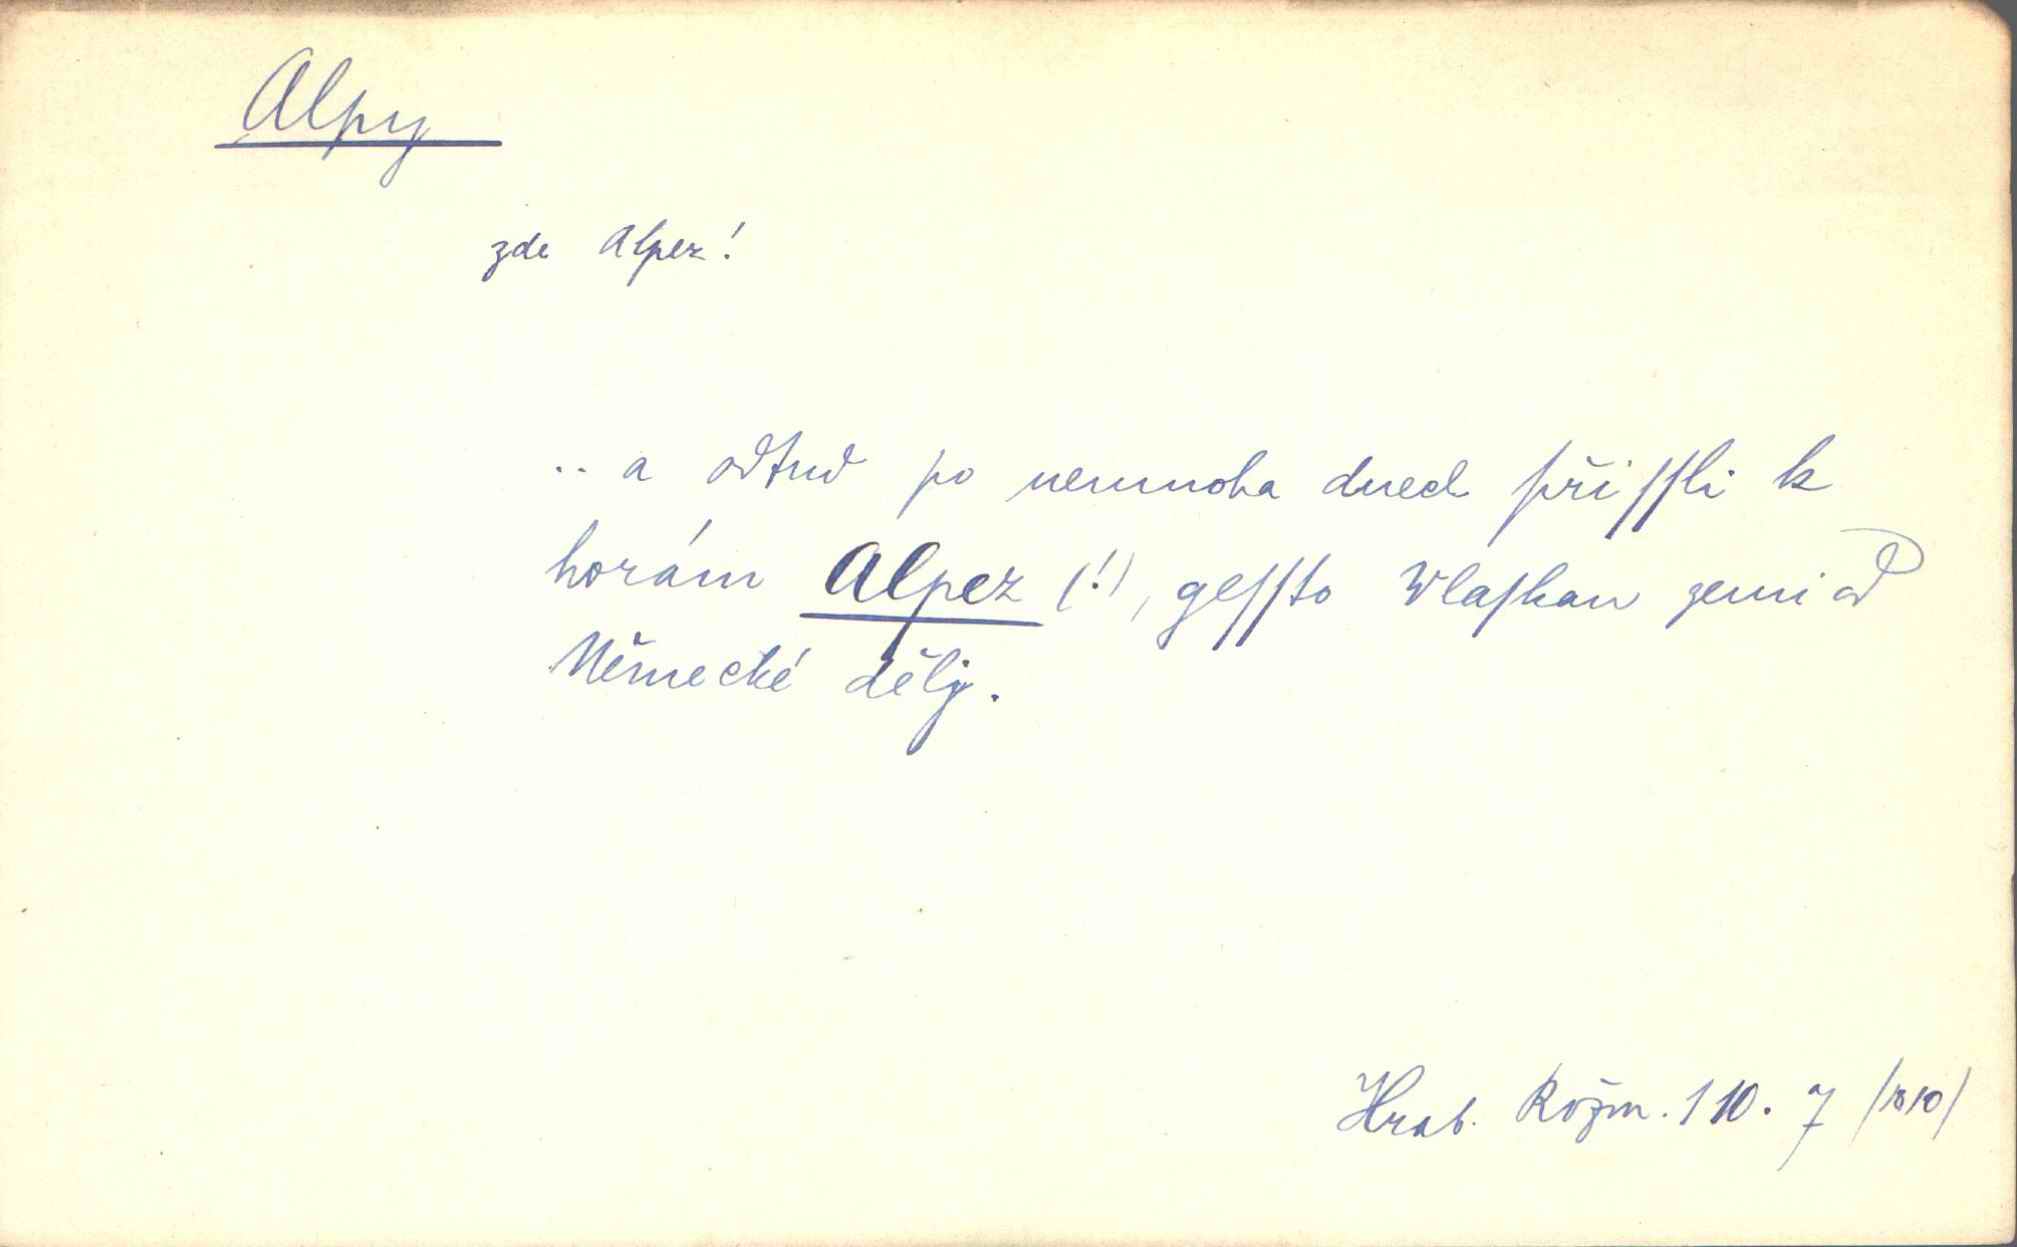 Alpy
zde Alpez!
.. a odtud po nemnoha dnech přiſſli k
horám Alpez (!), geſſto Wlaſkau zemi od
Německé dělj.
Hrab. Rožm. 110. 7 /1810/